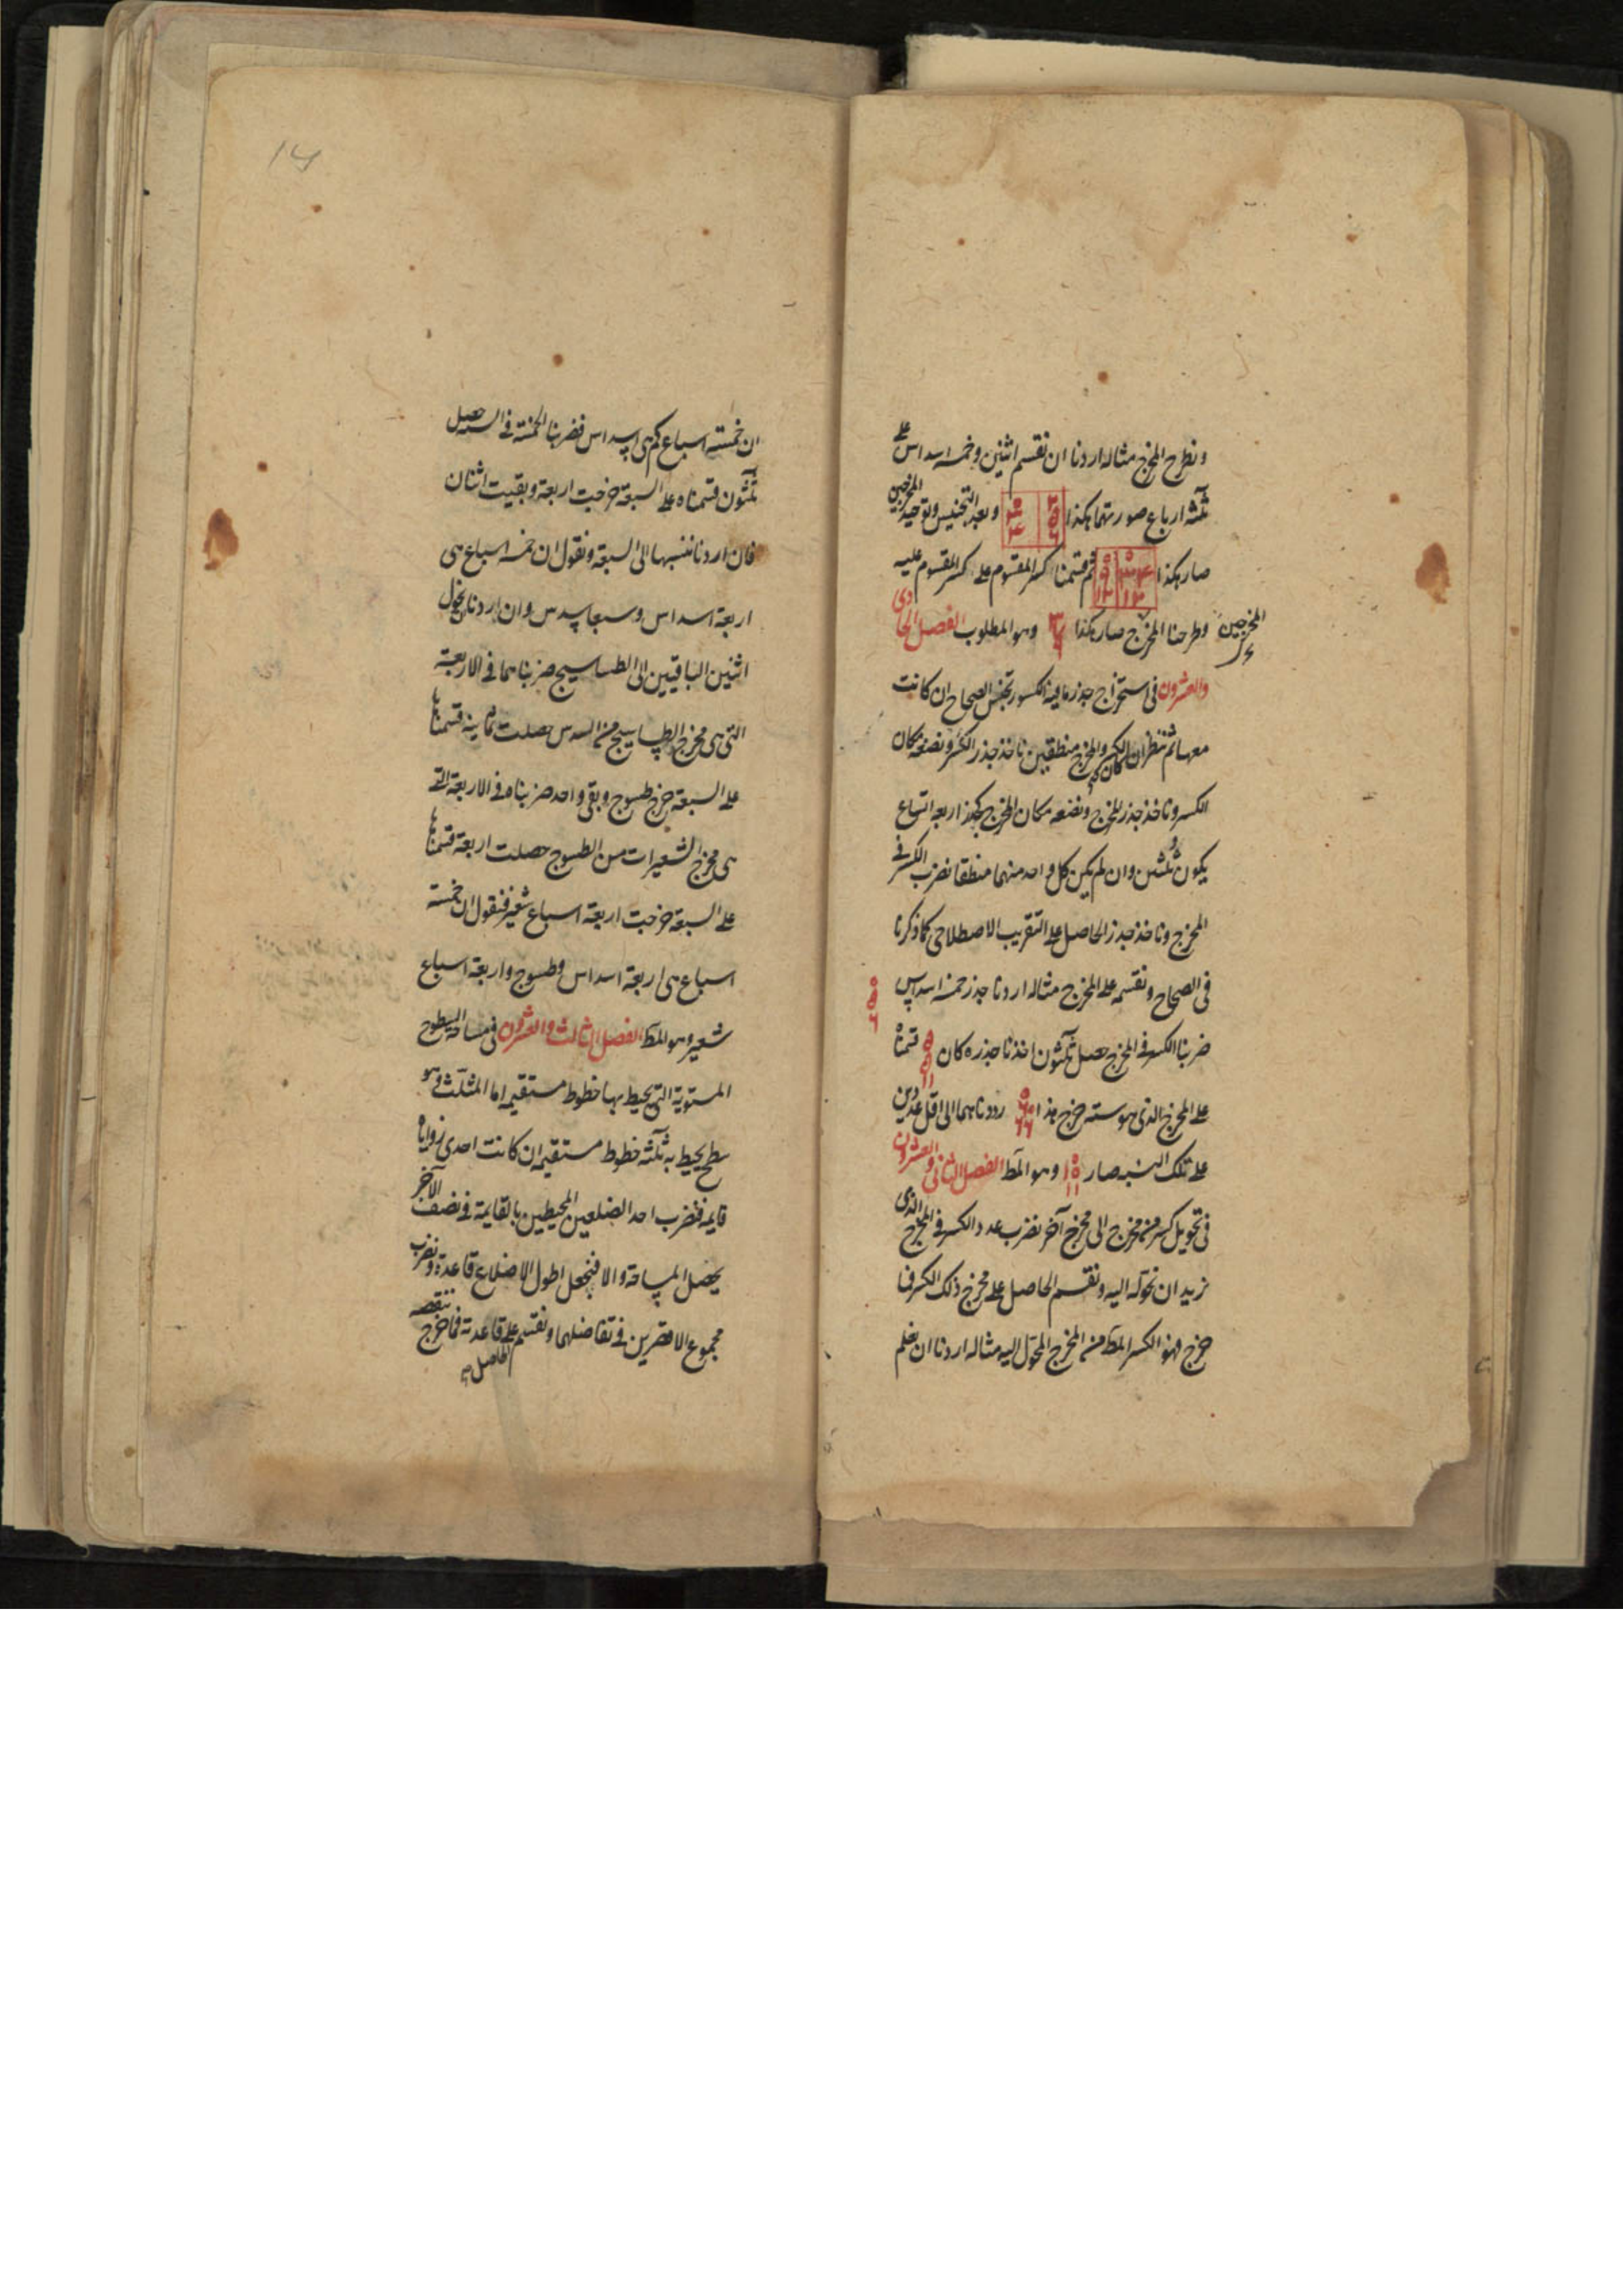 ونطرح المخرج مثاله اردنا ان نقسم اثنين وخمسه اسداس على
ثلثه ارباع صورتهما هكذا وبعد التجنيس وتوحيد المخرجين
صار هكذا ثم قسمنا كسر المقسوم على كسر المقسوم عليه
وطرحنا المخرج صار هكذا وهو المطلوب الفصل الحادى
المخرجين
والعشرون فى استخراج جذر ما فيه الكسور تجنس الصحاح ان كانت
معها ثم ننظر ان كان الكسر والمخرج منطقين ناخذ جذر الكسر ونضعه مكان
الكسر وناخذ جذر المخرج ونضعه مكان المخرج كجذر اربعه اتساع
يكون ثلثين وان لم يكن كل واحد منهما منطقا نضرب الكسر فى
المخرج وناخذ جذر الحاصل على التقريب الاصطلاحى كما ذكرنا
فى الصحاح ونقسمه على المخرج مثاله اردنا جذر خمسه اسداس
ضربنا الكسر فى المخرج حصل ثلثون اخذنا جذره كان قسمناه
على المخرج الذى هو سته خرج هذا رددناهما الى اقل عددين
على تلك النسبه صار ١٠ ١١ وهو المط الفصل الثانى والعشرون
فى تحويل كسر من مخرج الى مخرج آخر نضرب عدد الكسر فى المخرج الذى
نريد ان نحوله اليه ونقسم الحاصل على مخرج ذلك الكسر فما
خرج فهو الكسر المط من المخرج المحول اليه مثاله اردنا ان نعلم
ان خمسة اسباع كم هى اسداس فضربنا الخمسة فى السته حصل
ثلثون قسمناه على السبعة خرجت اربعة وبقيت اثنان
فان اردنا ننسبها الى السبعة ونقول ان خمسه اسباع هى
اربعة اسداس وسبعا سدس وان اردنا نحول
اثنين الباقيين الى الطساسيج ضربناهما فى الاربعة
التى هى مخرج الطساسيج من السدس حصلت ثمانيه قسمناها
على السبعة خرج طسوج وبقى واحد ضربناه فى الاربعة التى
هى مخرج الشعيرات من الطسوج حصلت اربعة قسمناها
على السبعة خرجت اربعة اسباع شعير فنقول ان خمسة
اسباع هى اربعة اسداس وطسوج واربعة اسباع
شعير وهو المط الفصل الثالث والعشرون فى مساحة السطوح
المستوية التى يحيط بها خطوط مستقيمه اما المثلث وهو
سطح يحيط به ثلثه خطوط مستقيمه ان كانت احدى زواياه
قايمه فنضرب احد الضلعين المحيطين بالقايمة فى نصف الآخر
يحصل المساحة والا فنجعل اطول الاضلاع قاعدة ونضرب
مجموع الاقصرين فى تفاضلهما ونقسم الحاصل على قاعدته فما خرج ننقصه